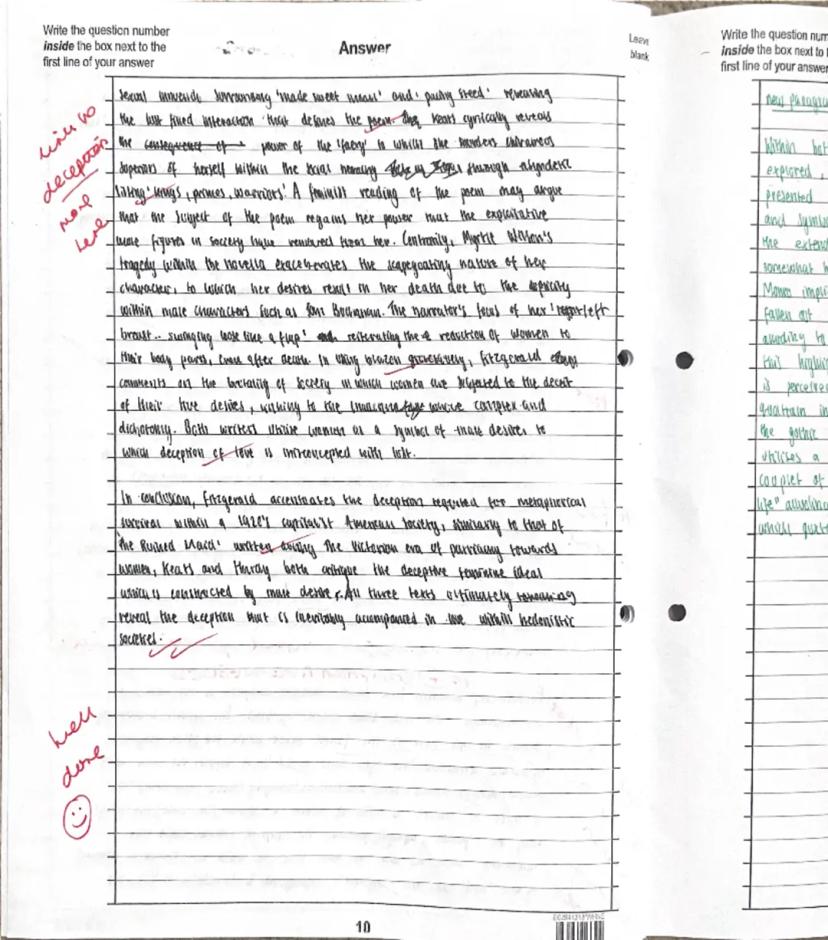 Write the question number
inside the box next to the
first line of your answer
Answer
Leave
blank
sexual innuendo surrounding 'made sweet moan' and 'pacing steed' revealing
the lust fuelled interaction that defines the poem. Keats cynically reveals
the consequence of power of the 'faery' to which she
of herself within the social through
listing 'kings, princes, warriors'. A feminist reading of the poem may argue
that the subject of the poem regains her power that the exploitative
male figures in society have rendered from her. Contrarily, Myrtle Wilson's
tragedy within the novella exacerbates the scapegoating nature of her
character, to which her desires result in her death due to the duplicity
within male characters such as Tom Buchanan. The narrator's focus of her left
breast.. swinging loose like a flap' reiterating the reduction of women to
their body parts, even after death. In using blazon grotesquely, Fitzgerald
comments on the brutality of society in which women are to the deceit
of their true desires, to the whore complex and
dichotomy. Both writers utilise women as a symbol of male desires to
which deception of love is misconcepted with lust.
In conclusion, Fitzgerald accentuates the deception required for metaphorical
survival within a 1920's capitalist American society, similarly to that of
'The Ruined Maid' written during the Victorian era of towards
women, Keats and Hardy both critique the deceptive feminine ideal
which is constructed by male desire. All three texts ultimately
reveal the deception that is inevitably accompanied in love within hedonistic
societies.
links to
deception
more
here
well
done
10
Write the question num
inside the box next to
first line of your answer
new paragra
Within bot
explored,
presented
and symbo
the extend
somewhat
impli
fallen
according to
this highli
is perceive
quatrain in
the gothic
utilises a
couplet of
life"
which